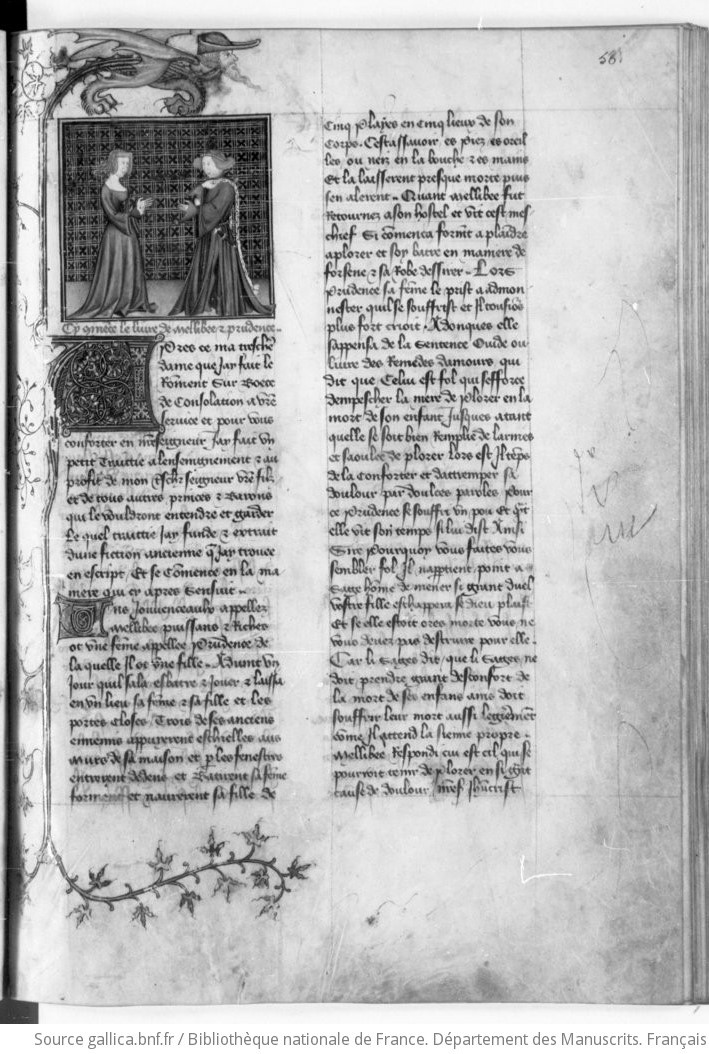 58
Cy co͞mece le liure de mellibee ⁊ prudence
Apres ce ma treschẽ
dame que Jay fait le
Rom̃ent Sur Boece
de Consolation a vr̃e
seruice et pour vous
conforter en nr̃eseigneur Jay fait vn
petit Traittie alenseignement ⁊ au
profit de mon t̃sch̃r seigneur vr̃e filz
et de tous autres princes ⁊ Barons
qui le vouldront entendre et garder
Le quel traittie Jay funde ⁊ extrait
dune fiction ancienne q̃ Jay trouee
en escript. Et se Com̃ence en la ma
niere qui cy apres Sensuit
Uns Jouuenceaulx appellez
Mellibee puissans ⁊ Riches
ot vne fẽme appellee Prudence de
la quelle Il ot vne fille. Aduint vn
Jour quil sala esbatre ⁊ Jouer ⁊ laissa
en vn lieu sa fẽme ⁊ sa fille et les
portes Closes. Trois de ses anciens
ennemis appuyerent eschielles aus
murs de sa maison et p̲ les fenestres
entrerent dedens et Batirent sa fẽme
forment et naurerent sa fille de
Cinq playes en Cinq lieux de son
Corps. Cestassauoir es piez es oreil
les ou nez en la bouche ⁊ es mains
Et la laisserent presque morte puis
sen alerent. Quant Mellibee fut
Retournez a son hostel et vit cest mes
chief Si com̃enca form̃t a plaindre
a plorer et soy batre en maniere de
forsene ⁊ sa Robe dessirer. Lors
Prudence sa fẽme le prist a admon
nester quil se souffrist et Il tousiours
plus fort crioit. Adonques elle
sappensa de la Sentence Ouide ou
liure des Remedes damours qui
dit que Celui est fol qui sefforce
dempescher la mere de plorer en la
mort de son enfant Jusques atant
quelle se soit bien Remplie de larmes
et saoulee de plorer lors est Il tẽps
de la Conforter et dattremper sa
doulour par doulces paroles pour
ce Prudence se souffri vn pou Et q̃nt
elle vit son temps si lui dist Ainsi
Sire pourquoy vous faites vous
sembler fol Il nappartient point a
Sage home de mener si grant duel
vostre fille eschappera se dieu plaist
Et se elle estoit ores morte vous ne
vous deuez pas destruire pour elle.
Car li Sages dit que li Sages ne
doit prendre grant desconfort de
la mort de ses enfans ains doit
souffrir leur mort aussi legierem̃t
com̃e Il attend la sienne propre.
Mellibee Respondi cui est cil qui se
pourroit tenir de plorer en si gr̃nt
cause de doulour. nr̃esr̃ Jhũcrist
Source gallica.bnf.fr / Bibliothèque nationale de France. Département des Manuscrits. Français